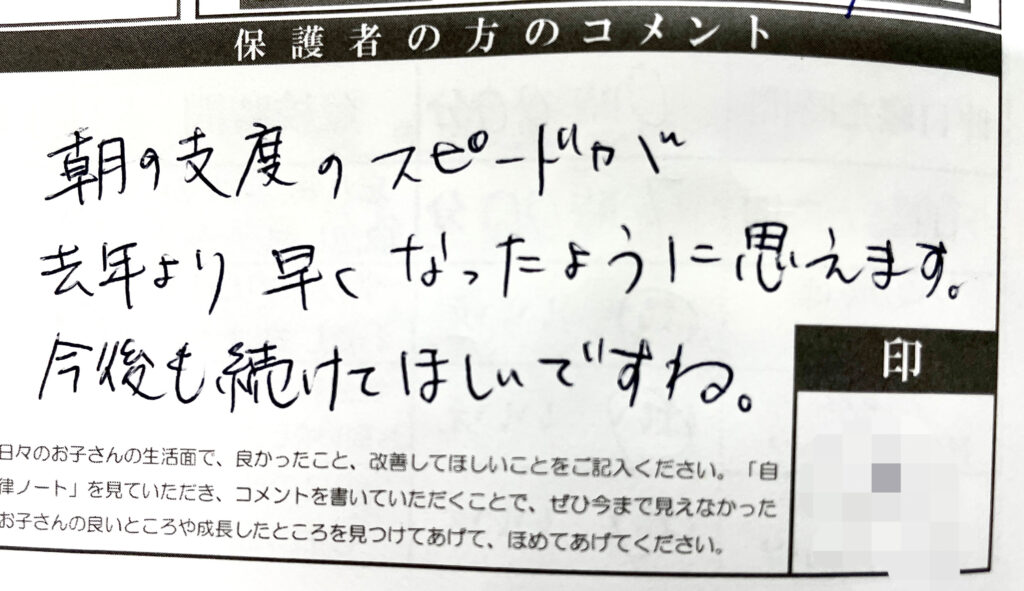 保護者の方のコメント
朝の支度のスピードが
去年より早くなったように思えます。
今後も続けてほしいですね。
印
日々のお子さんの生活面で、良かったこと、改善してほしいことをご記入ください。「自
律ノート」を見ていただき、コメントを書いていただくことで、ぜひ今まで見えなかった
お子さんの良いところや成長したところを見つけてあげて、ほめてあげてください。